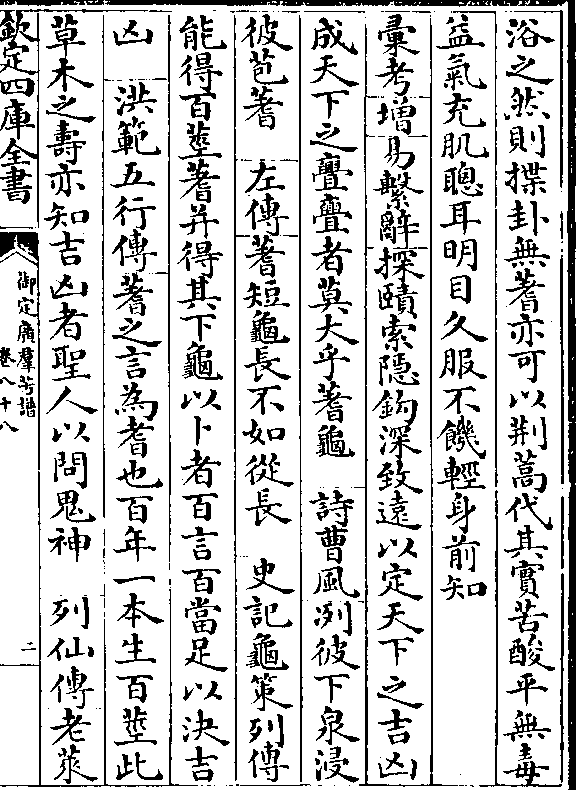 浴之然則揲卦無蓍亦可以荆蒿代其實苦酸平無毒
益氣充肌聰耳明目久服不饑輕身前知
彙考增易繫辭探賾索隱鈎深致遠以定天下之吉凶
成天下之亹亹者莫大乎蓍龜　詩曹風冽彼下泉浸
彼苞蓍　左傳蓍短龜長不如從長　史記龜策列傳
能得百莖蓍并得其下龜以卜者百言百當足以決吉
凶　洪範五行傳蓍之言為耆也百年一本生百莖此
草木之壽亦知吉凶者聖人以問鬼神　列仙傳老萊
欽定四庫全書
御定廣羣芳譜
卷八十八
二